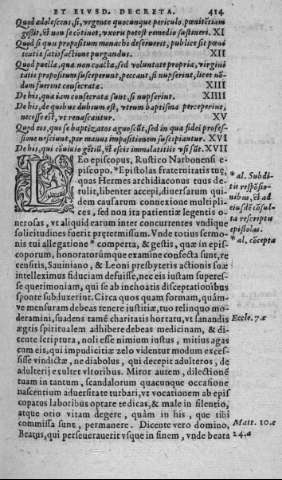 ET EIVSD. DECRETA. 414
Quòd adolescens, si, vrgente quocunque periculo, pœnitentiam
gessit, & se non cōtinet, vxoris potest remedio sustineri. XI
Quòd si quis propositum monachi deseruerit, publicæ sit pœni-
tentiæ satisfactione purgandus. XII
Quòd puella, quæ non coacta, sed voluntate propria, virgini
tatis propositum susceperunt, peccant, si nupserint, licet nō-
dum fuerint consecratæ. XIII
De his, quæ iam consecratæ sunt, si nupserint. XIIII
De his, de quibus dubium est, vtrum baptisma perceperint,
necesse est, vt renascantur. XV
Quòd eos, qui se baptizatos agnoscūt, sed in qua fidei profes-
sione nesciunt, per manus impositionem suscipiantur. XVI
De his, qui cōuiuio gētiliū, & escis immolatitiis vsi sūt. XVII
LEo episcopus, Rustico Narbonensi e-
piscopo. *Epistolas fraternitatis tuæ,
quas Hermes archidiaconus tuus de
tulit, libenter accepi, diuersarum qui
dem causarum connexione multipli-
ces, sed non ita patientiæ legentis o-
nerosas, vt aliquid earum inter concurrentes vndique
solicitudines fuerit prætermissum. Vnde totius sermo-
nis tui allegatione * comperta, & gestis, quæ in epis-
coporum, honoratorúmque examine confecta sunt, re
censitis, Sauiniano, & Leoni presbyteris actionis suæ
intellexímus fiduciam defuisse, nec eis iustam superes-
se querimoniam, qui se ab inchoatis disceptationibus
sponte subduxerint. Circa quos quam formam, quám-
ve mensuram debeas tenere iustitiæ, tuo relinquo mo-
deramini, suadens tamē charitatis hortatu, vt sanandis
ægris spiritualem adhibere debeas medicinam, & di-
cente scriptura, noli esse nimium iustus, mitius agas
cum eis, qui impudicitiæ zelo videntur modum exces-
sisse vindictæ, ne diabolus, qui decepit adulteros, de
adulterij exultet vltoribus. Miror autem, dilectionē
tuam in tantum, scandalorum quacunque occasione
nascentium aduersitate turbari, vt vocationem ab epis
copatus laboribus optare te dicas, & malle in silentio,
atque otio vitam degere, quàm in his, quæ tibi
commissa sunt, permanere. Dicente vero domino,
Beatus, qui perseuerauerit vsque in finem, vnde beata
* al. Subdi-
tis respōsio-
nibus, & ad
* al. cōcepta
Eccle. 7.a
Matt. 10.a
24.a